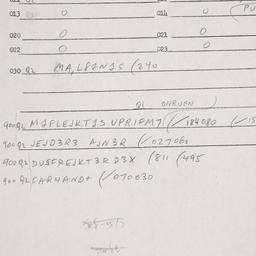 013 0 014 0 (PU
020 0 021 0
022 0 023 0
030 Q2 MA,L81N1S (240
Q1 OHRVEN )
900 Q2 M1FLEJKT1S UPRIFM7 (/184080 (/18
900 Q2 JEJD3R3 AJN3R (/027060
900 Q2 DUSFREJKT3R D3X (811 (495
900 Q2 CARHAND+ (/070030